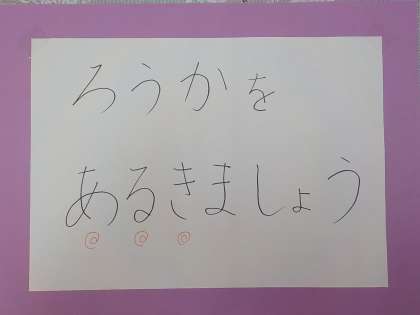 ろうかを
あるきましょう